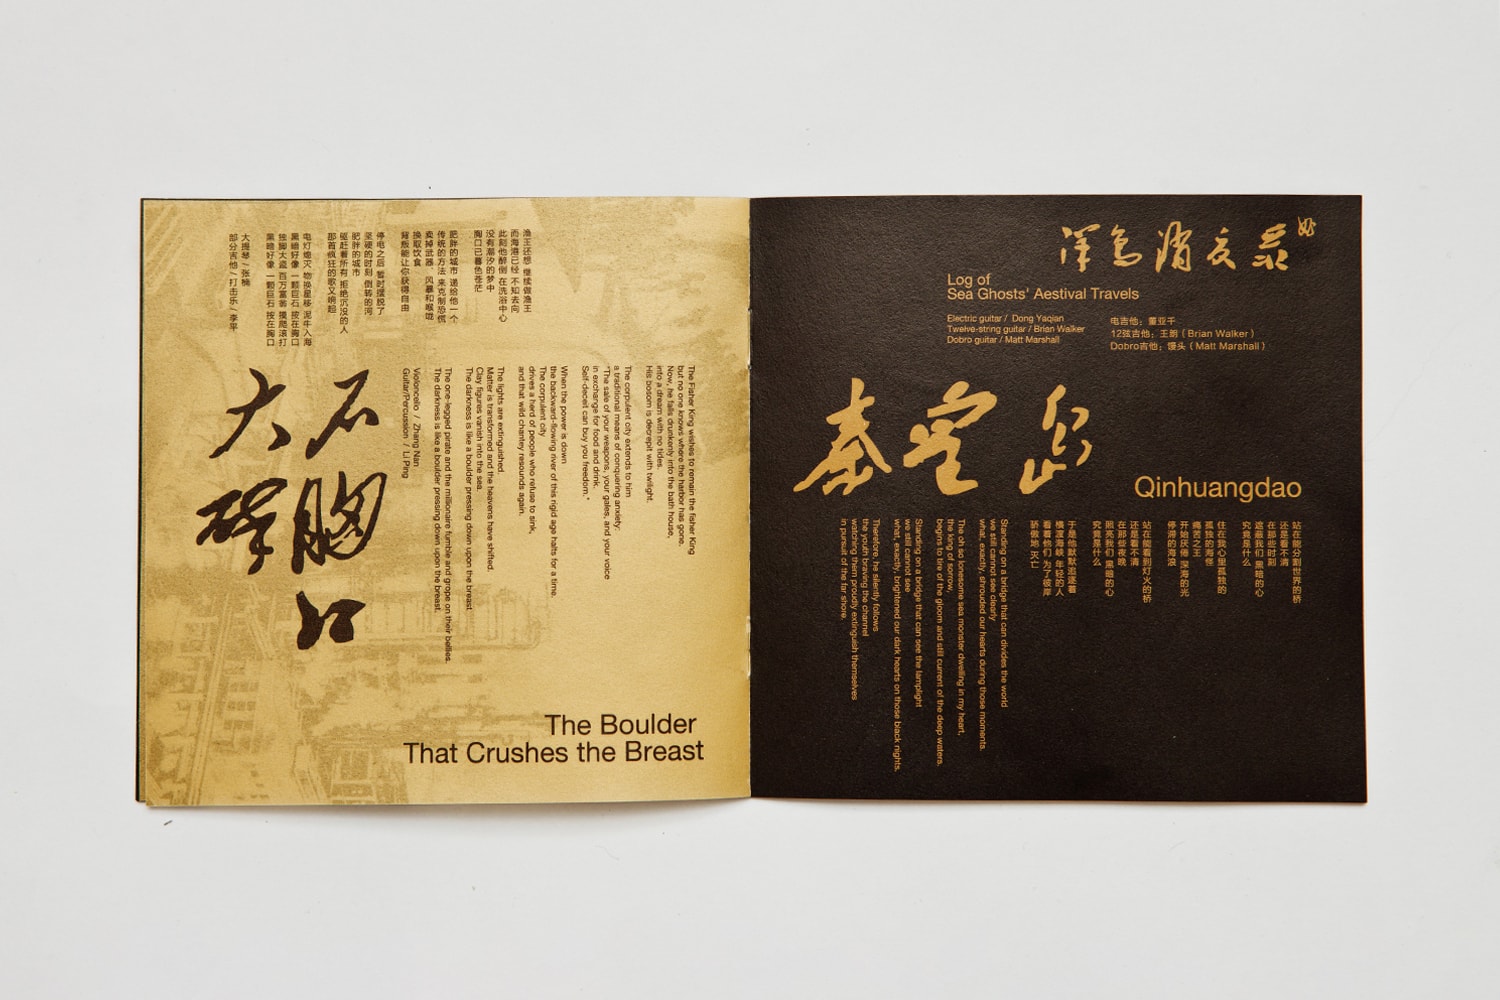 渔王还想 继续做渔王
而海港已经 不知去向
此刻他醉倒 在洗浴中心
没有潮汐的梦中
胸口已暮色苍茫
肥胖的城市 递给他一个
传统的方法 来克制恐慌
卖掉武器 风暴和喉咙
换取饮食
背叛能让你获得自由
停电之后 暂时摆脱了
坚硬的时刻 倒转的河
肥胖的城市
驱赶着所有 拒绝沉没的人
那首疯狂的歌又响起
电灯熄灭 物换星移 泥牛入海
黑暗好像 一颗巨石 按在胸口
独脚大盗 百万富翁 摸爬滚打
黑暗好像 一颗巨石 按在胸口
大提琴 / 张楠
部分吉他 / 打击乐 / 李平
大石
碎胸
口
The Fisher King wishes to remain the fisher King
but no one knows where the harbor has gone.
Now, he falls drunkenly into the bath house,
into a dream with no tides.
His bosom is decrepit with twilight.
The corpulent city extends to him
a traditional means of conquering anxiety:
"The sale of your weapons, your gales, and your voice
in exchange for food and drink.
Self-deceit can buy you freedom."
When the power is down
the backward-flowing river of this rigid age halts for a time.
The corpulent city
drives a herd of people who refuse to sink,
and that wild chantey resounds again.
The lights are extinguished.
Matter is transformed and the heavens have shifted.
Clay figures vanish into the sea.
The darkness is like a boulder pressing down upon the breast
The one-legged pirate and the millionaire fumble and grope on their bellies.
The darkness is like a boulder pressing down upon the breast.
Violoncello / Zhang Nan
Guitar/Percussion / Li Ping
The Boulder
That Crushes the Breast
消夏录
Log of
Sea Ghosts' Aestival Travels
Electric guitar / Dong Yaqian
Twelve-string guitar / Brian Walker
Dobro guitar / Matt Marshall
电吉他：董亚千
12弦吉他：王朗（Brian Walker）
Dobro吉他：馒头（Matt Marshall）
秦皇岛
Qinhuangdao
站在能分割世界的桥
还是看不清
在那些时刻
遮蔽我们 黑暗的心
究竟是什么
住在我心里孤独的
孤独的海怪
痛苦之王
开始厌倦 深海的光
停滞的海浪
站在能看到灯火的桥
还是看不清
在那些夜晚
照亮我们 黑暗的心
究竟是什么
于是他默默追逐着
横渡海峡 年轻的人
看着他们 为了彼岸
骄傲地 灭亡
Standing on a bridge that can divides the world
we still cannot see clearly
what, exactly, shrouded our hearts during those moments.
The oh so lonesome sea monster dwelling in my heart,
the king of sorrow,
begins to tire of the gloom and still current of the deep waters.
Standing on a bridge that can see the lamplight
we still cannot see
what, exactly, brightened our dark hearts on those black nights.
Therefore, he silently follows
the youth braving the channel
watching them proudly extinguish themselves
in pursuit of the far shore.